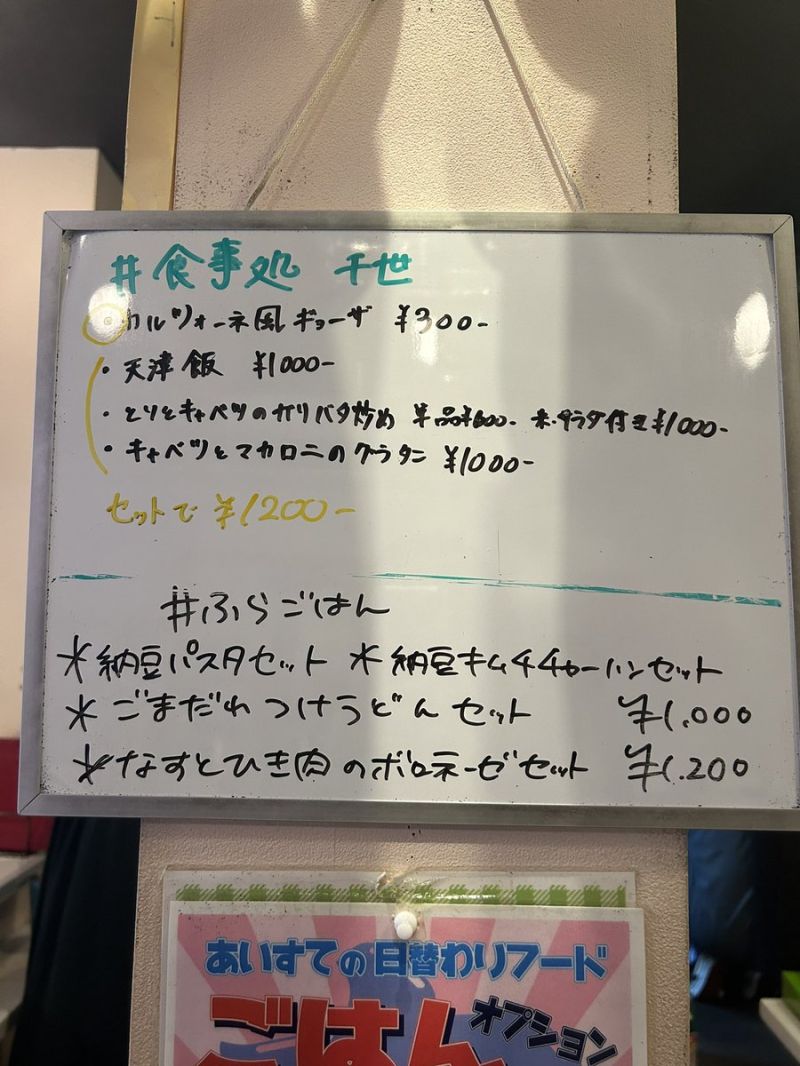 #食事処 千世
・カルツォーネ風ギョーザ ¥300-
・天津飯 ¥1000-
・とりとキャベツのガリバタ炒め 単品¥600- 米・サラダ付き¥1000-
・キャベツとマカロニのグラタン ¥1000-
セットで ¥1200-
#ふらごはん
*納豆パスタセット *納豆キムチチャーハンセット
*ごまだれつけうどんセット ¥1.000
*なすとひき肉のボロネーゼセット ¥1.200
あいすての日替わりフード
ごはん
オプション